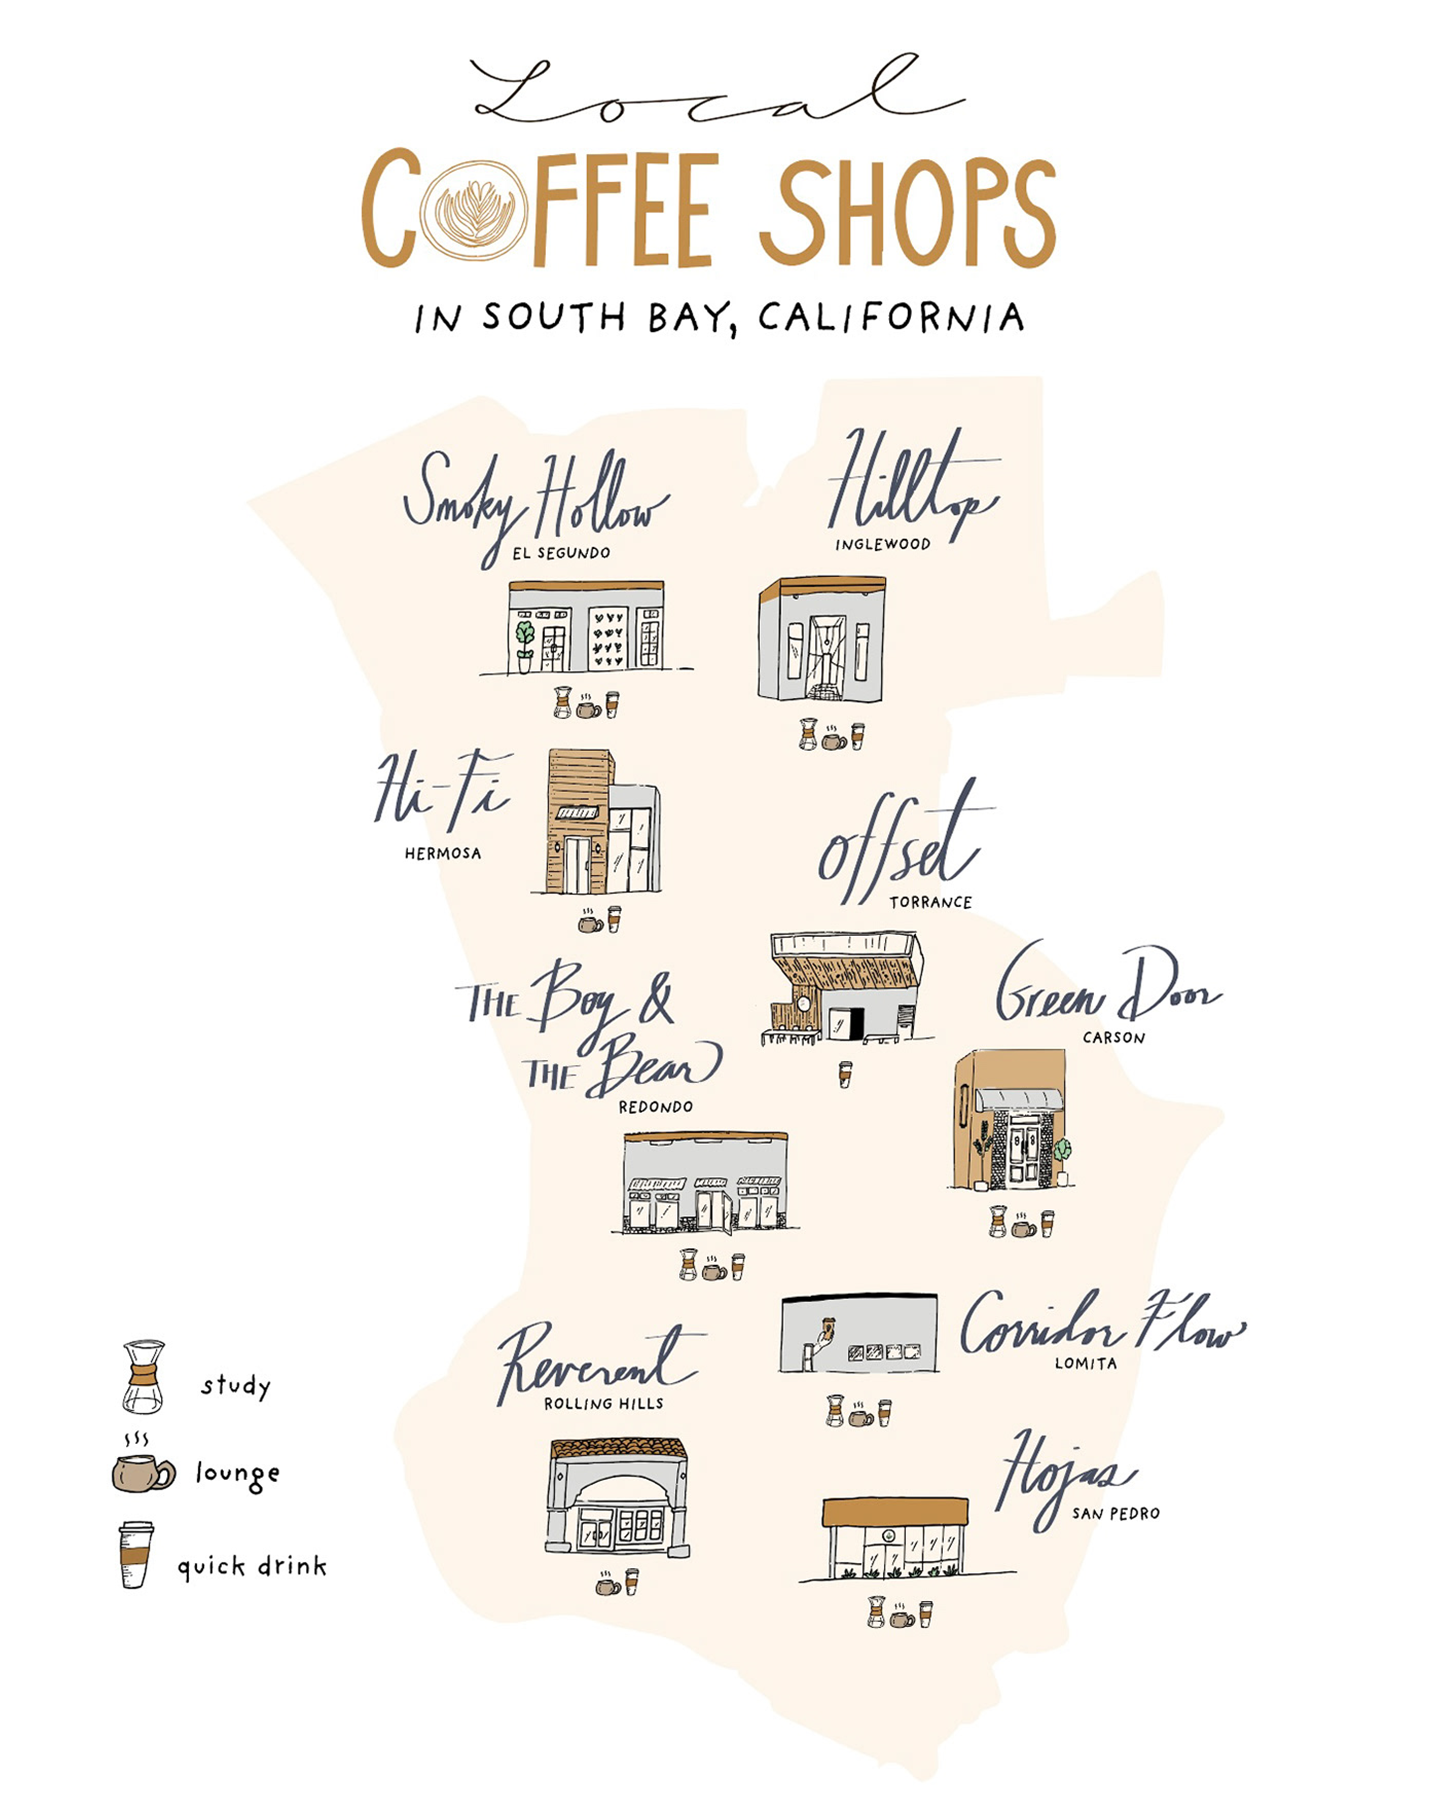 Local
COFFEE SHOPS
IN SOUTH BAY, CALIFORNIA
Smoky Hollow
EL SEGUNDO
Hilltop
INGLEWOOD
Hi-Fi
HERMOSA
Offset
TORRANCE
THE Boy &
THE Bear
REDONDO
Green Door
CARSON
Reverent
ROLLING HILLS
Corridor Flow
LOMITA
Hojas
SAN PEDRO
study
lounge
quick drink